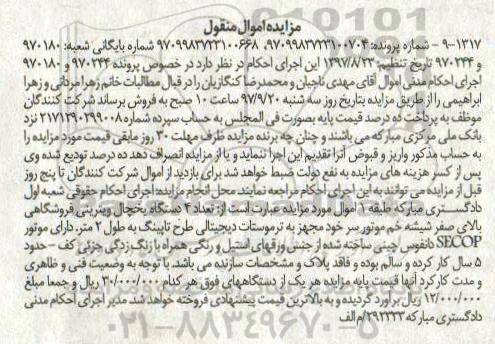 مزایده اموال منقول
۹-۱۳۱۷ - شماره پرونده: ۹۷۰۹۹۸۳۷۲۳۱۰۰۷۰۴، ۹۷۰۹۹۸۳۷۲۳۱۰۰۶۶۸ شماره بایگانی شعبه: ۹۷۰۱۸۰
و ۹۷۰۲۴۴ تاریخ تنظیم: ۱۳۹۷/۸/۲۳ این اجرای احکام در نظر دارد در خصوص پرونده ۹۷۰۲۴۴ و ۹۷۰۱۸۰
اجرای احکام مدنی اموال آقای مهدی تاجیان و محمدرضا کنگازیان را در قبال مطالبات خانم زهرا مردانی و زهرا
ابراهیمی را از طریق مزایده بتاریخ روز سه شنبه ۹۷/۹/۲۰ ساعت ۱۰ صبح به فروش برساند شرکت کنندگان
موظف به پرداخت ده درصد قیمت پایه بصورت فی المجلس به حساب سپرده شماره ۲۱۷۱۲۹۰۲۹۹۰۰۸ نزد
بانک ملی مرکزی مبارکه می باشند و چنان چه برنده مزایده ظرف مهلت ۳۰ روز مابقی قیمت مورد مزایده را
به حساب مذکور واریز و قبوض آنرا تقدیم این اجرا ننماید و یا از مزایده انصراف دهد ده درصد تودیع شده وی
پس از کسر هزینه های مزایده به نفع دولت ضبط خواهد شد. برای بازدید از اموال شرکت کنندگان تا پنج روز
قبل از مزایده می توانند به این اجرای احکام مراجعه نمایند. محل انجام مزایده: اجرای احکام حقوقی شعبه اول
دادگستری مبارکه طبقه ۲ اموال مورد مزایده عبارت است از: تعداد ۴ دستگاه یخچال ویترینی فروشگاهی
بالای صفر شیشه خم موتور سر خود مجهز به ترموستات دیجیتالی طرح تاپینگ به طول ۲ متر. دارای موتور
SECOP دانفوس چینی ساخته شده از جنس ورقهای استیل و رنگی همراه با زنگ زدگی جزئی کف - حدود
۵ سال کار کرده و سالم بوده و فاقد پلاک و مشخصات سازنده می باشد. با توجه به وضعیت فنی و ظاهری
و مدت کارکرد آنها قیمت پایه مزایده هر یک از دستگاههای فوق هر کدام ۳۰/۰۰۰/۰۰۰ ریال و جمعا مبلغ
۱۲/۰۰۰/۰۰۰ ریال برآورد گردیده و به بالاترین قیمت پیشنهادی فروخته خواهد شد. مدیر اجرای احکام مدنی
دادگستری مبارکه ۲۹۲۳۳۳/م الف
۰۲۱-۸۸۳۴۹۶۷۰-۵